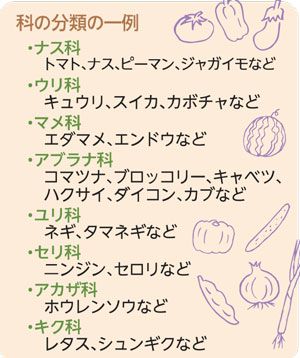 科の分類の一例
・ナス科
トマト、ナス、ピーマン、ジャガイモなど
・ウリ科
キュウリ、スイカ、カボチャなど
・マメ科
エダマメ、エンドウなど
・アブラナ科
コマツナ、ブロッコリー、キャベツ、
ハクサイ、ダイコン、カブなど
・ユリ科
ネギ、タマネギなど
・セリ科
ニンジン、セロリなど
・アカザ科
ホウレンソウなど
・キク科
レタス、シュンギクなど